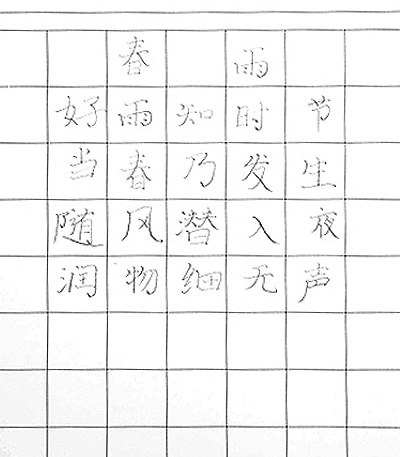 春 雨
好雨知时节
当春乃发生
随风潜入夜
润物细无声